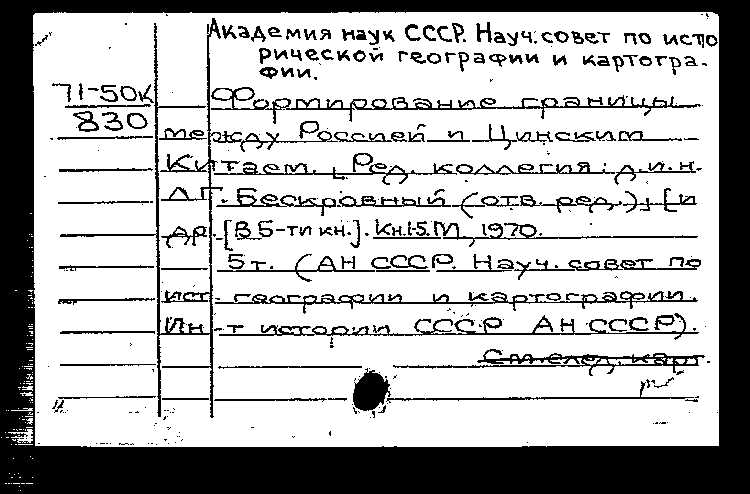 Академия наук СССР. Науч. совет по исто
рической географии и картогра-
фии.
71-50К
830
Формирование границы
между Россией и Цинским
Китаем. Ред. коллегия: д.и.н.
Л.Г. Бескровный (отв. ред.), [и
др. [В 5-ти кн.]. Кн. 1-5. М, 1970.
5 т. (АН СССР. Науч. совет по
ист. географии и картографии.
Ин-т истории СССР АН СССР).
См. след. карт.